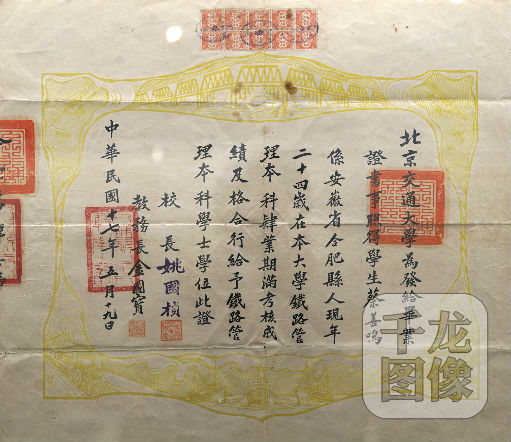 北京交通大學為發給畢業
證書事照得學生蔡善鳴
係安徽省合肥縣人現年
二十四歲在本大學鐵路管
理本科肄業期滿考核成
績及格合行給予鐵路管
理本科學士學位此證
校長姚國楨
教務長金國寶
中華民國十七年五月九日
千龙
图像